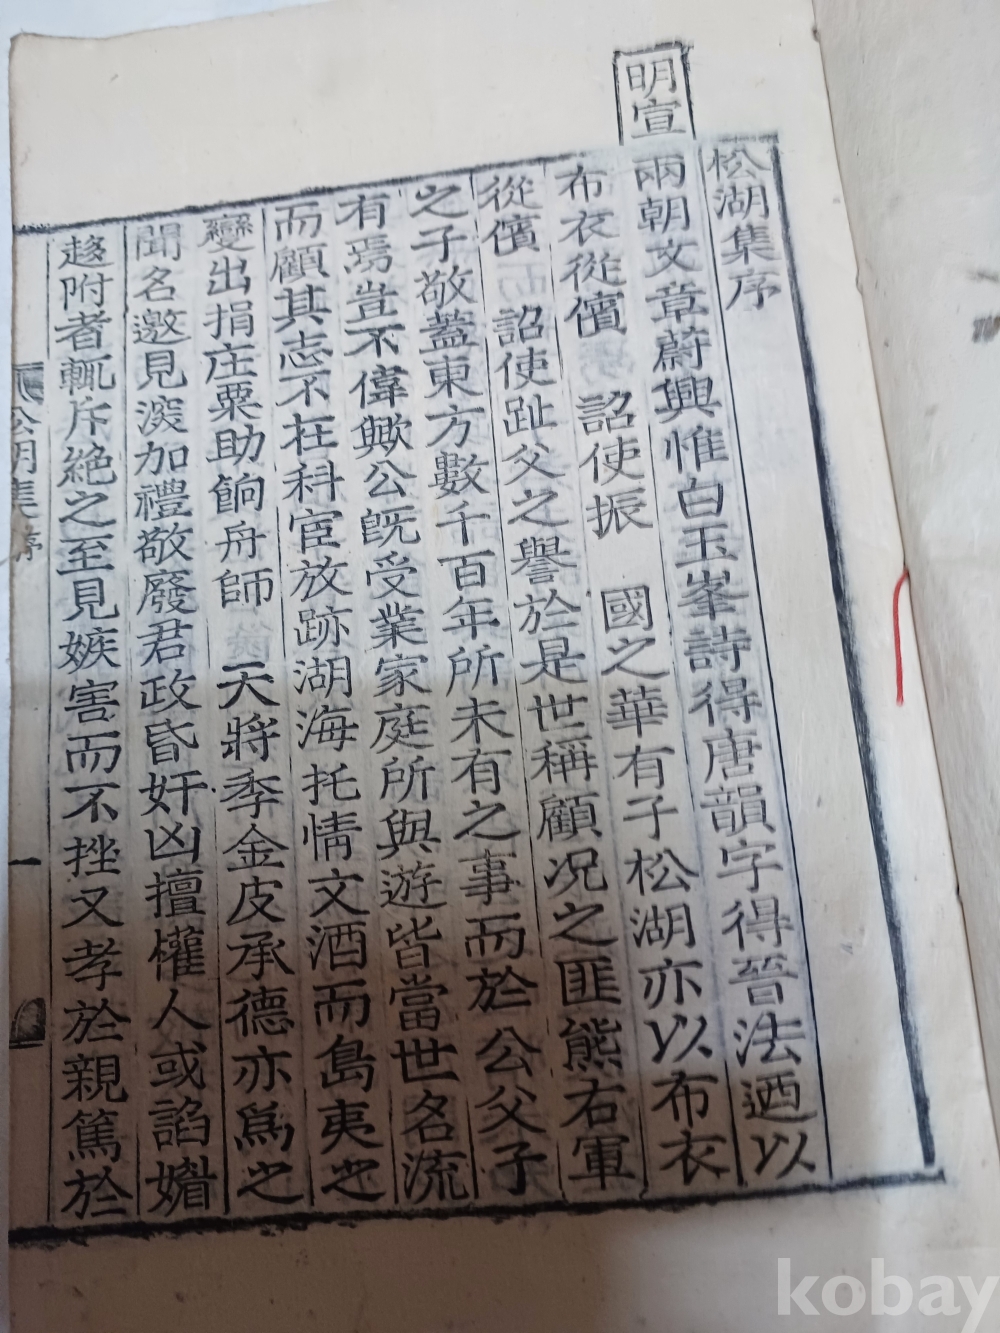 明宣
松湖集序
兩朝文章蔚興惟白玉峯詩得唐韻字得晉法迺以
布衣從儐 詔使振 國之華有子松湖亦以布衣
從儐 詔使趾父之譽於是世稱顧况之匪熊右軍
之子敬蓋東方數千百年所未有之事而於公父子
有焉豈不偉歟公旣受業家庭所與遊皆當世名流
而顧其志不在科宦放跡湖海托情文酒而島夷之
變出捐庄粟助餉舟師 天將季金皮承德亦爲之
聞名邀見深加禮敬廢君政昏奸凶擅權人或諂媚
趍附者輒斥絶之至見嫉害而不挫又孝於親篤於
松湖集 序
一
kobay